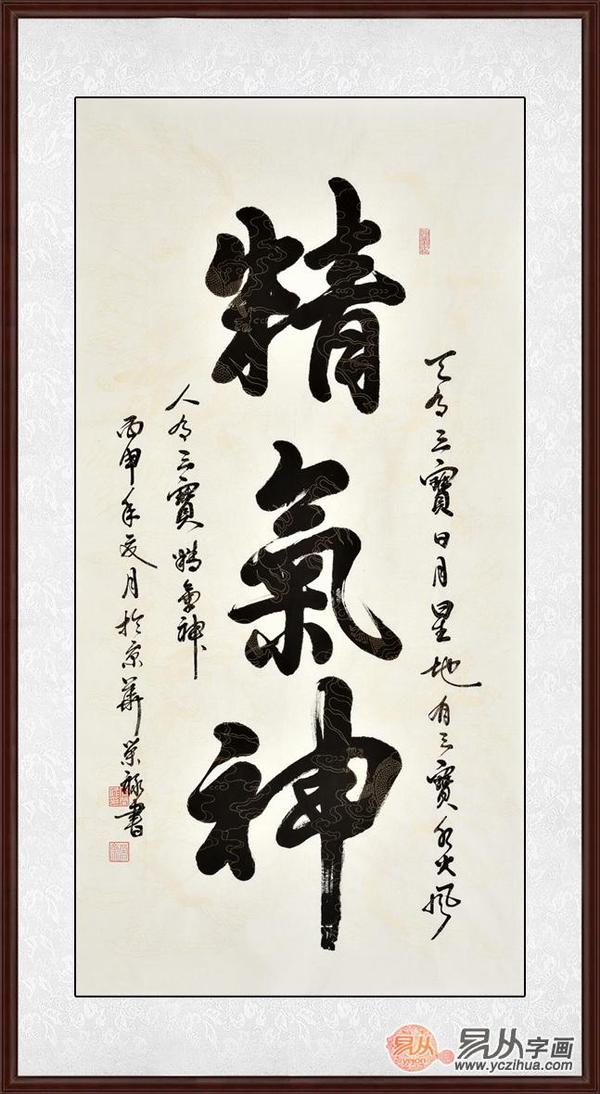 精氣神
天有三寶日月星地有三寶水火風
人有三寶精氣神
丙申年夏月於京華榮祿書
易从
yexon
易从字画
www.yczihua.com